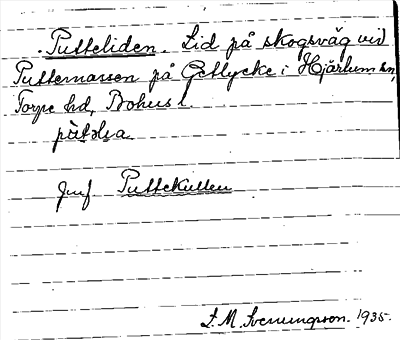 Putteliden. Lid på skogsväg vid
Puttemassen på Getlycke i Hjärtum sn,
Torpe hd, Bohusl.
Jmf Puttekullen
S. M. Svenungsson. 1935.